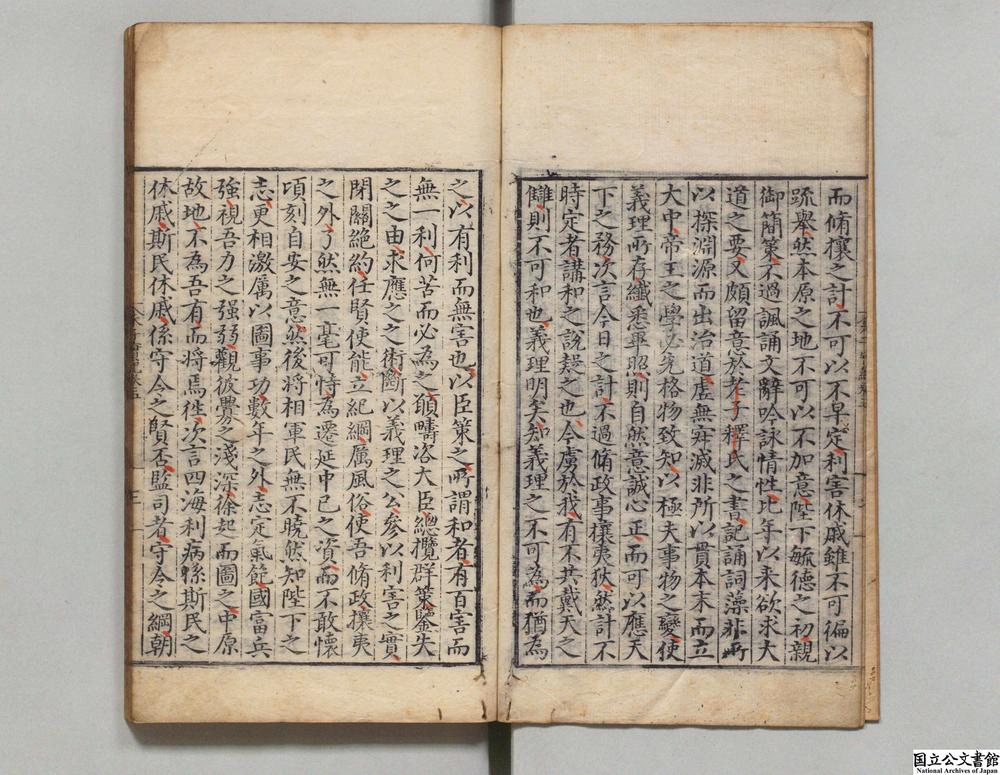 而脩攘之計不可以不早定利害休戚雖不可徧以
疏舉然本原之地不可以不加意陛下毓德之初親
御簡策不過諷誦文辭吟詠情性比年以来欲求大
道之要又頗留意於老子釋氏之書記誦詞藻非所
以探淵源而出治道虛無寂滅非所以貫本末而立
大中帝王之學必先格物致知以極夫事物之變使
義理所存纖悉畢照則自然意誠心正而可以應天
下之務次言今日之計不過脩政事攘夷狄然計不
時定者講和之說疑之也今虜於我有不共戴天之
讎則不可和也義理明矣知義理之不可為而猶為
之以有利而無害也以臣策之所謂和者有百害而
無一利何苦而必為之願疇咨大臣總攬群策鑒失
之之由求應之之術斷以義理之公參以利害之實
閉關絶約任賢使能立紀綱厲風俗使吾脩政攘夷
之外了然無一毫可恃為遷延中已之資而不敢懷
頃刻自安之意然後將相軍民無不曉然知陛下之
志更相激厲以圖事功數年之外志定氣飽國富兵
強視吾力之强弱觀彼釁之淺深徐起而圖之中原
故地不為吾有而将焉徃次言四海利病係斯民之
休戚斯民休戚係守令之賢否監司者守令之綱朝
国立公文書館
National Archives of Japan